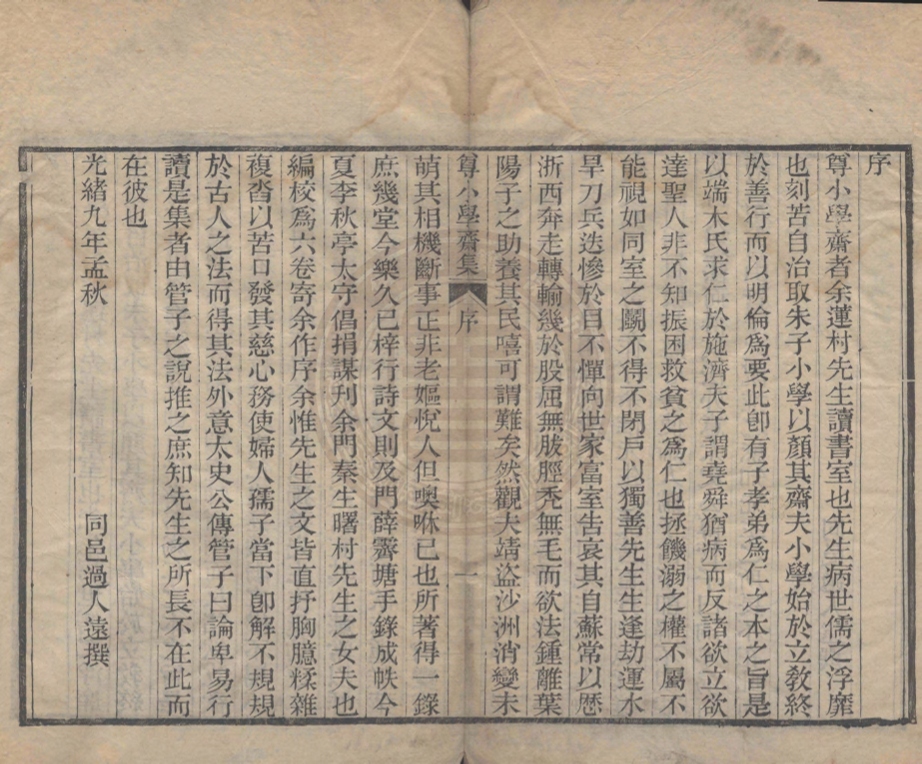 序
尊小學齋者余蓮村先生讀書室也先生病世儒之浮靡
也刻苦自治取朱子小學以顏其齋夫小學始於立敎終
於善行而以明倫爲要此卽有子孝弟爲仁之本之旨是
以端木氏求仁於施濟夫子謂堯舜猶病而反諸欲立欲
達聖人非不知振困救貧之爲仁也拯饑溺之權不屬不
能視如同室之鬭不得不閉戶以獨善先生生逢劫運水
旱刀兵迭慘於目不憚向世家富室告哀其自蘇常以歷
浙西奔走轉輸幾於股屈無胈脛禿無毛而欲法鍾離葉
陽子之助養其民嘻可謂難矣然觀夫靖盜沙洲消變未
尊小學齋集
序
一
萌其相機斷事正非老嫗悅人但噢咻已也所著得一錄
庶幾堂今樂久已梓行詩文則及門薛霽塘手錄成帙今
夏李秋亭太守倡捐謀刊余門秦生曙村先生之女夫也
編校爲六卷寄余作序余惟先生之文皆直抒胸臆糅雜
複沓以苦口發其慈心務使婦人孺子當下卽解不規規
於古人之法而得其法外意太史公傳管子曰論卑易行
讀是集者由管子之說推之庶知先生之所長不在此而
在彼也
光緒九年孟秋
同邑過人遠撰